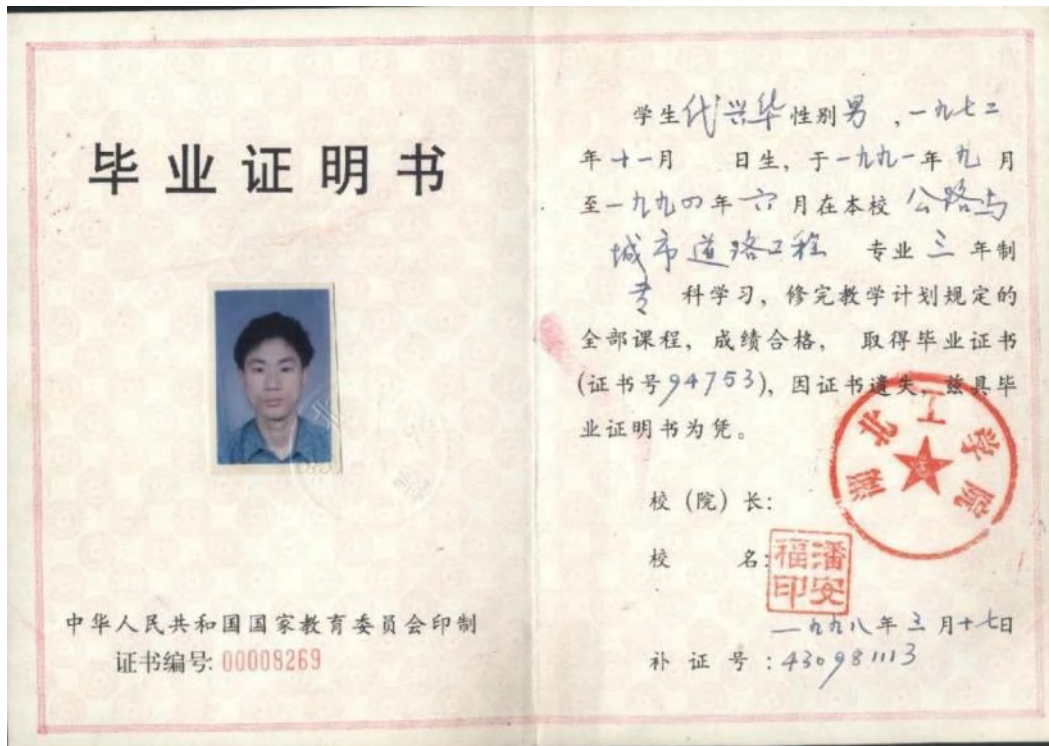 毕业证明书
中华人民共和国国家教育委员会印制
证书编号:00008269
学生代兴华性别男,一九七二
年十一月 日生,于一九九一年九月
至一九九四年六月在本校公路与
城市道路工程 专业三年制
专 科学习,修完教学计划规定的
全部课程,成绩合格, 取得毕业证书
(证书号94753),因证书遗失,兹具毕
业证明书为凭。
湖北工学院
校(院)长:
校 名:
潘安
福印
一九九八年三月十七日
补 证 号:430981113